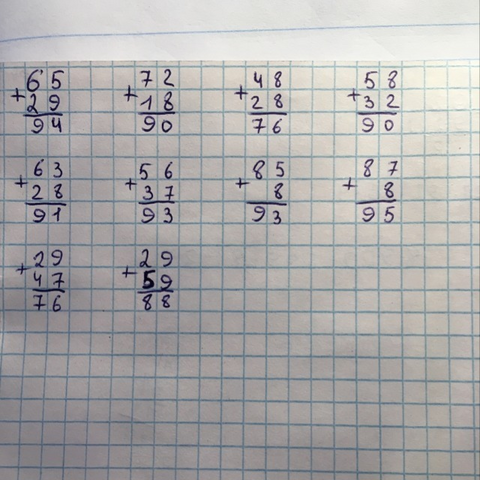 65 72 48 58
+ + + +
29 18 28 32
94 90 76 90
63 56 85 87
+ + + +
28 37 8 8
91 93 93 95
29 29
+ +
47 59
76 88